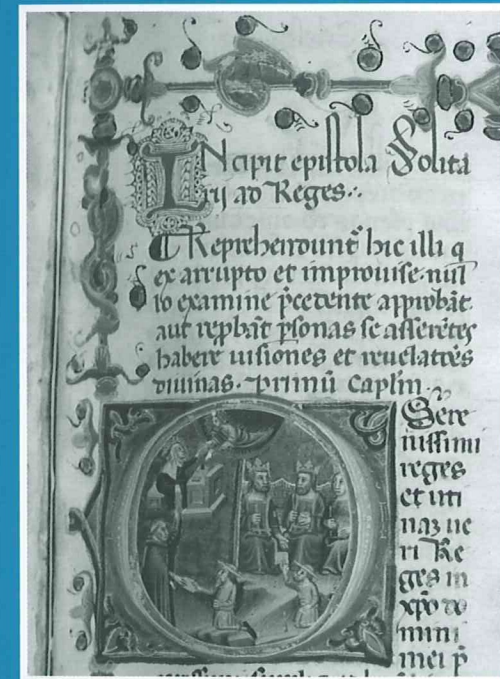 INcipit epistola Solita
rij ad Reges.
Reprehendunt̃ hic illi q
ex arrupto et improuise nul
lo examine p̃cedente approbãt
aut rep̃bãt p̃sonas se asserẽtes
habere uisiones et reuelatões
diuinas. primũ caplm.
Sere
nissimi
reges
et uti
naz ue
ri Re
ges in
xp̃o do
mini
mei p̃